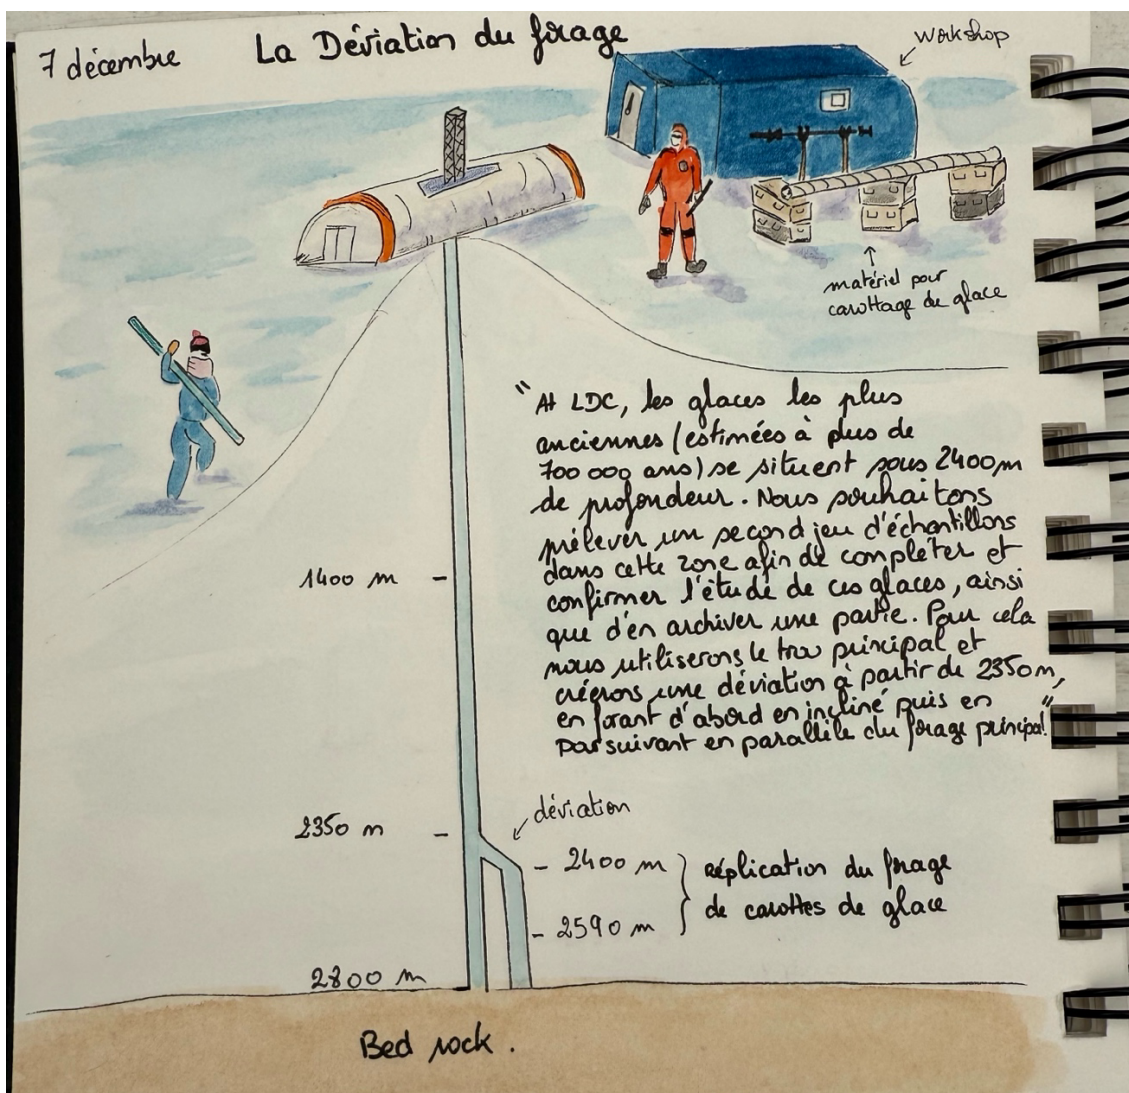 7 décembre
La Déviation du forage
Workshop
matériel pour
carottage de glace
"At LDC, les glaces les plus
anciennes (estimées à plus de
700 000 ans) se situent sous 2400m
de profondeur. Nous souhaitons
prélever un second jeu d'échantillons
dans cette zone afin de compléter et
confirmer l'étude de ces glaces, ainsi
que d'en archiver une partie. Pour cela
nous utiliserons le trou principal et
créerons une déviation à partir de 2350m,
en forant d'abord en incliné puis en
poursuivant en parallèle du forage principal."
1400 m
2350 m
déviation
2400 m
2590 m
réplication du forage
de carottes de glace
2800 m
Bed rock.